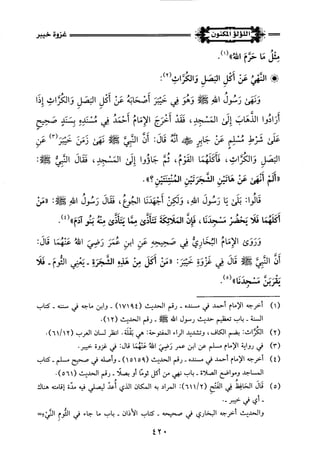 اللؤلؤ المكنون
غزوة خيبر
مِثْلُ مَا حَرَّمَ اللهُ»(١).
* النَّهْيُ عَنْ أَكْلِ البَصَلِ وَالكُرَّاثِ(٢):
وَنَهَى رَسُولُ اللهِ ﷺ وَهُوَ فِي خَيْبَرَ أَصْحَابَهُ عَنْ أَكْلِ البَصَلِ وَالكُرَّاثِ إِذَا
أَرَادُوا الذَّهَابَ إِلَى المَسْجِدِ، فَقَدْ أَخْرَجَ الإِمَامُ أَحْمَدُ فِي مُسْنَدِهِ بِسَنَدٍ صَحِيحٍ
عَلَى شَرْطِ مُسْلِمٍ عَنْ جَابِرٍ ﷺ أَنَّهُ قَالَ: أَنَّ النَّبِيَّ ﷺ نَهَى زَمَنَ خَيْبَرَ(٣) عَنِ
البَصَلِ وَالكُرَّاثِ، فَأَكَلَهُمَا القَوْمُ، ثُمَّ جَاؤُوا إِلَى المَسْجِدِ، فَقَالَ النَّبِيُّ ﷺ:
«أَلَمْ أَنْهَى عَنْ هَاتَيْنِ الشَّجَرَتَيْنِ المُنْتِنَتَيْنِ؟».
قَالُوا: بَلَى يَا رَسُولَ اللهِ، وَلَكِنْ أَجْهَدَنَا الجُوعُ، فَقَالَ رَسُولُ اللهِ ﷺ: «مَنْ
أَكَلَهُمَا فَلَا يَحْضُرْ مَسْجِدَنَا، فَإِنَّ المَلَائِكَةَ تَتَأَذَّى مِمَّا يَتَأَذَّى مِنْهُ بَنُو آدَمَ»(٤).
وَرَوَى الإِمَامُ البُخَارِيُّ فِي صَحِيحِهِ عَنِ ابنِ عُمَرَ رَضِيَ اللهُ عَنْهُمَا قَالَ:
أَنَّ النَّبِيَّ ﷺ قَالَ فِي غَزْوَةِ خَيْبَرَ: «مَنْ أَكَلَ مِنْ هَذِهِ الشَّجَرَةِ - يَعْنِي الثُّومَ - فَلَا
يَقْرَبَنَّ مَسْجِدَنَا»(٥).
(١) أخرجه الإمام أحمد في مسنده - رقم الحديث (١٧١٩٤) - وابن ماجه في سننه - كتاب
السنة - باب تعظيم حديث رسول الله ﷺ - رقم الحديث (١٢).
(٢) الكُرَّاث: بضم الكاف، وتشديد الراء المفتوحة: هي بَقْلَة. انظر لسان العرب (٦١/١٢).
(٣) في رواية الإمام مسلم عن ابن عمر رَضِيَ اللهُ عَنْهُمَا قال: في غزوة خيبر.
(٤) أخرجه الإمام أحمد في مسنده - رقم الحديث (١٥١٥٩) - وأصله في صحيح مسلم - كتاب
المساجد ومواضع الصلاة - باب نهي من أكل ثومًا أو بصلًا - رقم الحديث (٥٦١).
(٥) قَالَ الحَافِظُ فِي الفَتْحِ (٦١١/٢): المراد به المكان الذي أُعِدَّ ليصلي فيه مدّة إقامته هناك
- أي في خيبر -.
والحديث أخرجه البخاري في صحيحه - كتاب الأذان - باب ما جاء في الثُّوم النَّيِّ =
٤٢٠